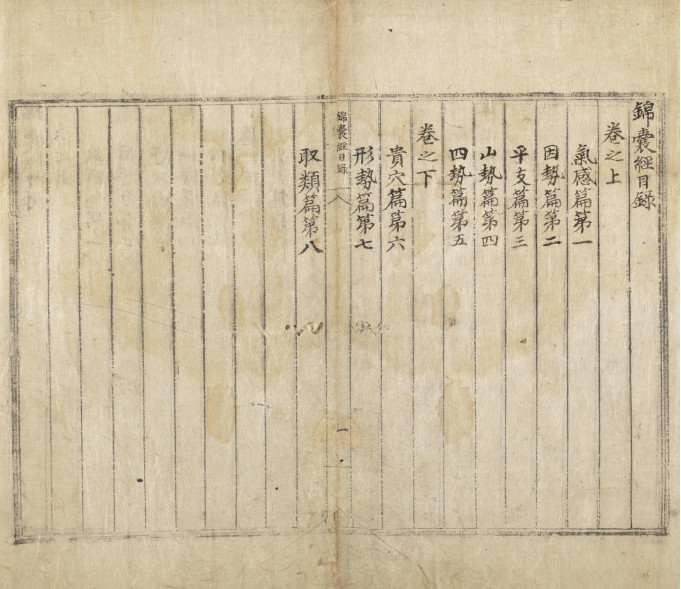 錦囊經目錄
卷之上
氣感篇第一
因勢篇第二
平支篇第三
山勢篇第四
四勢篇第五
卷之下
貴穴篇第六
形勢篇第七
錦囊經目錄
一
取類篇第八